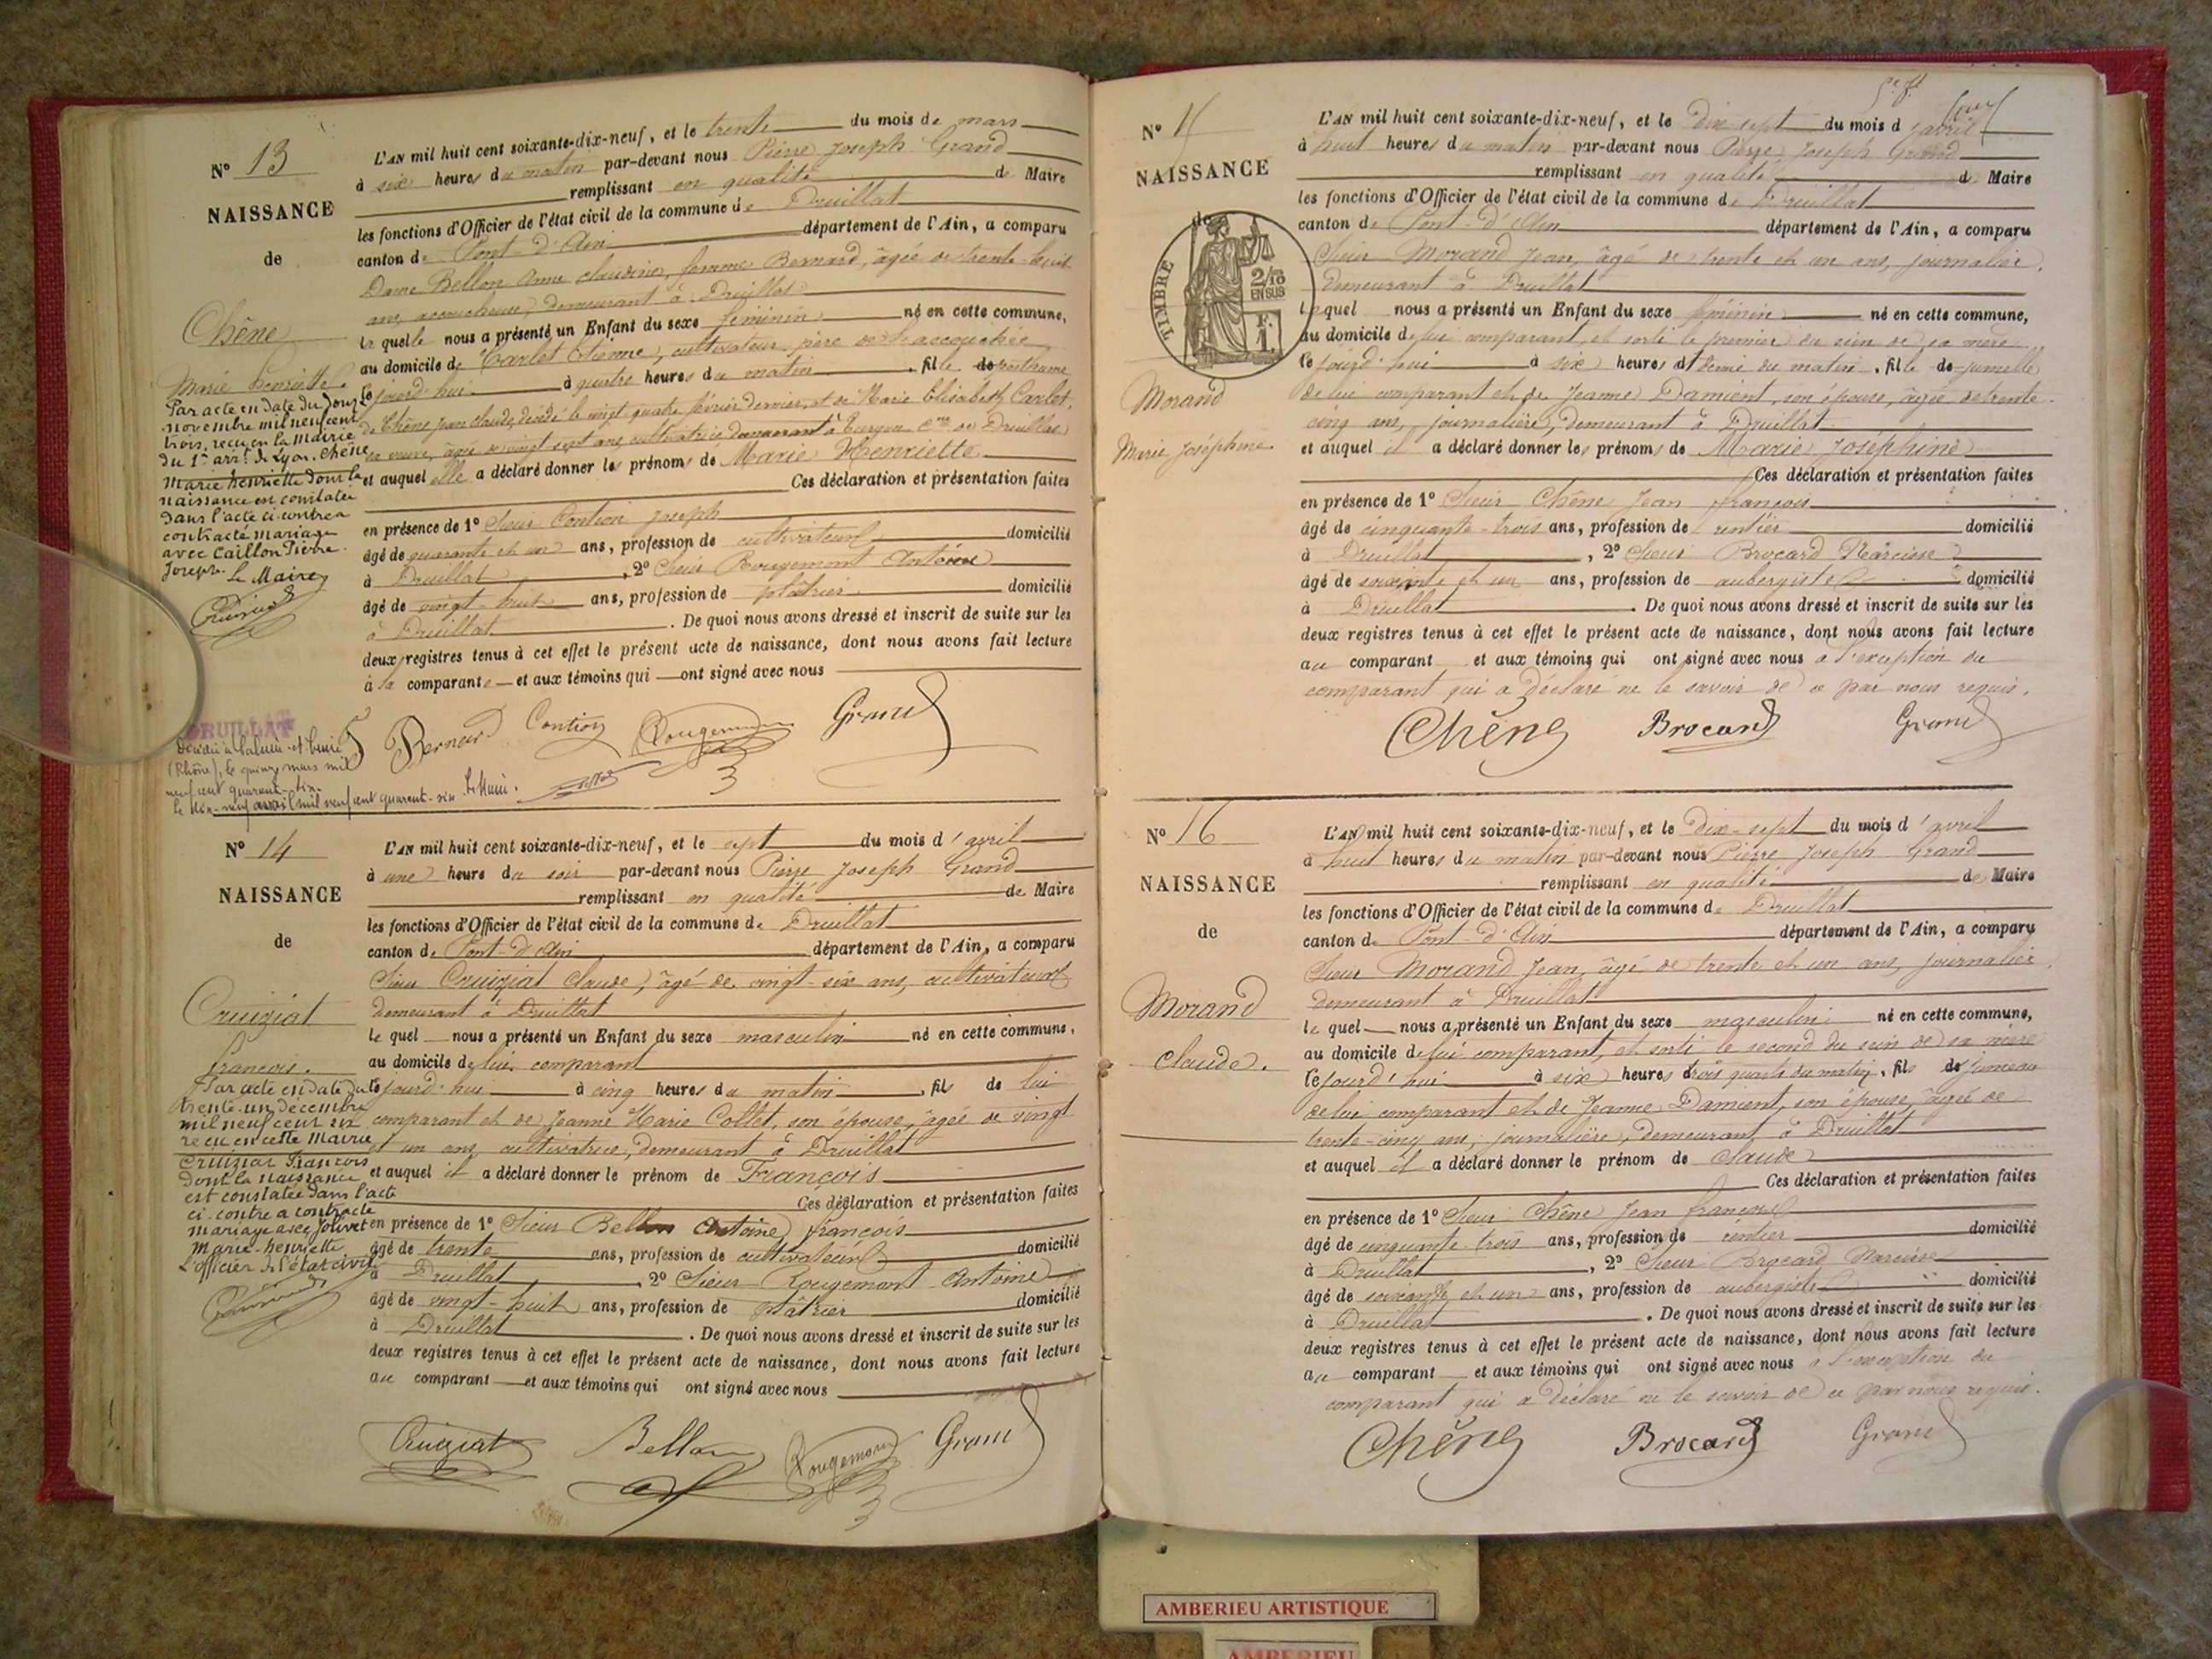 N° 13
NAISSANCE
de
Chêne
Marie Henriette.
Par acte en date du douze
novembre mil neuf cent
trois, reçu en la Mairie
du 1er arrt de Lyon, Chêne
Marie Henriette dont la
naissance est constatée
dans l'acte ci-contre a
contracté mariage
avec Caillon Pierre
Joseph. Le Maire
DRUILLAT
Décédée à Caluire-et-Cuire
(Rhône), le quinze mars mil
neuf cent quarante-six.
Le dix-neuf avril mil neuf cent quarante-six Le Maire.
L'AN mil huit cent soixante-dix-neuf, et le trente du mois de mars
à six heures du matin par-devant nous Pierre Joseph Grand
remplissant en qualité de Maire
les fonctions d'Officier de l'état civil de la commune de Druillat
canton de Pont-d'Ain département de l'Ain, a comparu
Dame Bellon Anne Claudine, femme Bernard, âgée de trente-huit
ans, accoucheuse, demeurant à Druillat
laquelle nous a présenté un Enfant du sexe féminin né en cette commune,
au domicile de Carlet Etienne, cultivateur, père de l'accouchée
cejourd'hui à quatre heures du matin, fille
de Chêne Jean Claude, décédé le vingt quatre février dernier, et de Marie Elisabeth Carlet,
sa veuve, âgée de vingt sept ans, cultivatrice demeurant à Turgon Cne de Druillat
et auquel elle a déclaré donner les prénoms de Marie Henriette
Ces déclaration et présentation faites
en présence de 1° Sieur Contion Joseph
âgé de quarante et un ans, profession de cultivateur domicilié
à Druillat, 2° Sieur Rougemont Antoine
âgé de vingt-huit ans, profession de plâtrier domicilié
à Druillat. De quoi nous avons dressé et inscrit de suite sur les
deux registres tenus à cet effet le présent acte de naissance, dont nous avons fait lecture
à la comparante et aux témoins qui ont signé avec nous
Bernard Contion Rougemont Grand
N° 14
NAISSANCE
de
Cruiziat
François.
Par acte en date du
trente-un décembre
mil neuf cent six
reçu en cette Mairie
Cruiziat François
dont la naissance
est constatée dans l'acte
ci-contre a contracté
mariage avec Jolivet
Marie-Henriette
L'officier de l'état civil
L'AN mil huit cent soixante-dix-neuf, et le sept du mois d'avril
à une heure du soir par-devant nous Pierre Joseph Grand
remplissant en qualité de Maire
les fonctions d'Officier de l'état civil de la commune de Druillat
canton de Pont-d'Ain département de l'Ain, a comparu
Sieur Cruiziat Claude, âgé de vingt-six ans, cultivateur
demeurant à Druillat
lequel nous a présenté un Enfant du sexe masculin né en cette commune,
au domicile de lui comparant
cejourd'hui à cinq heures du matin, fils de lui
comparant et de Jeanne Marie Collet, son épouse, âgée de vingt
et un ans, cultivatrice, demeurant à Druillat
et auquel il a déclaré donner le prénom de François
Ces déclaration et présentation faites
en présence de 1° Sieur Bellon Antoine François
âgé de trente ans, profession de cultivateur domicilié
à Druillat, 2° Sieur Rougemont Antoine
âgé de vingt-huit ans, profession de plâtrier domicilié
à Druillat. De quoi nous avons dressé et inscrit de suite sur les
deux registres tenus à cet effet le présent acte de naissance, dont nous avons fait lecture
au comparant et aux témoins qui ont signé avec nous
Cruiziat Bellon Rougemont Grand
N° 15
NAISSANCE
de
TIMBRE
2/10
EN SUS
F.
1.
Morand
Marie Joséphine
L'AN mil huit cent soixante-dix-neuf, et le dix-sept du mois d'avril
à huit heures du matin par-devant nous Pierre Joseph Grand
remplissant en qualité de Maire
les fonctions d'Officier de l'état civil de la commune de Druillat
canton de Pont-d'Ain département de l'Ain, a comparu
Sieur Morand Jean, âgé de trente et un ans, journalier,
demeurant à Druillat
lequel nous a présenté un Enfant du sexe féminin né en cette commune,
au domicile de lui comparant et sorti le premier du sein de sa mère
cejourd'hui à six heures et demie du matin, fille de jumelle
de lui comparant et de Jeanne Damient, son épouse, âgée de trente-
cinq ans, journalière, demeurant à Druillat
et auquel il a déclaré donner les prénoms de Marie Joséphine
Ces déclaration et présentation faites
en présence de 1° Sieur Chêne Jean François
âgé de cinquante-trois ans, profession de rentier domicilié
à Druillat, 2° Sieur Brocard Narcisse
âgé de soixante et un ans, profession de aubergiste domicilié
à Druillat. De quoi nous avons dressé et inscrit de suite sur les
deux registres tenus à cet effet le présent acte de naissance, dont nous avons fait lecture
au comparant et aux témoins qui ont signé avec nous à l'exception du
comparant qui a déclaré ne le savoir de ce par nous requis.
Chêne Brocard Grand
N° 16
NAISSANCE
de
Morand
Claude.
L'AN mil huit cent soixante-dix-neuf, et le dix-sept du mois d'avril
à huit heures du matin par-devant nous Pierre Joseph Grand
remplissant en qualité de Maire
les fonctions d'Officier de l'état civil de la commune de Druillat
canton de Pont-d'Ain département de l'Ain, a comparu
Sieur Morand Jean, âgé de trente et un ans, journalier,
demeurant à Druillat
lequel nous a présenté un Enfant du sexe masculin né en cette commune,
au domicile de lui comparant, et sorti le second du sein de sa mère
cejourd'hui à six heures trois quarts du matin, fils de jumeau
de lui comparant et de Jeanne Damient, son épouse, âgée de
trente-cinq ans, journalière, demeurant à Druillat
et auquel il a déclaré donner le prénom de Claude
Ces déclaration et présentation faites
en présence de 1° Sieur Chêne Jean François
âgé de cinquante-trois ans, profession de rentier domicilié
à Druillat, 2° Sieur Brocard Narcisse
âgé de soixante et un ans, profession de aubergiste domicilié
à Druillat. De quoi nous avons dressé et inscrit de suite sur les
deux registres tenus à cet effet le présent acte de naissance, dont nous avons fait lecture
au comparant et aux témoins qui ont signé avec nous à l'exception du
comparant qui a déclaré ne le savoir de ce par nous requis.
Chêne Brocard Grand
AMBERIEU ARTISTIQUE
AMBERIEU